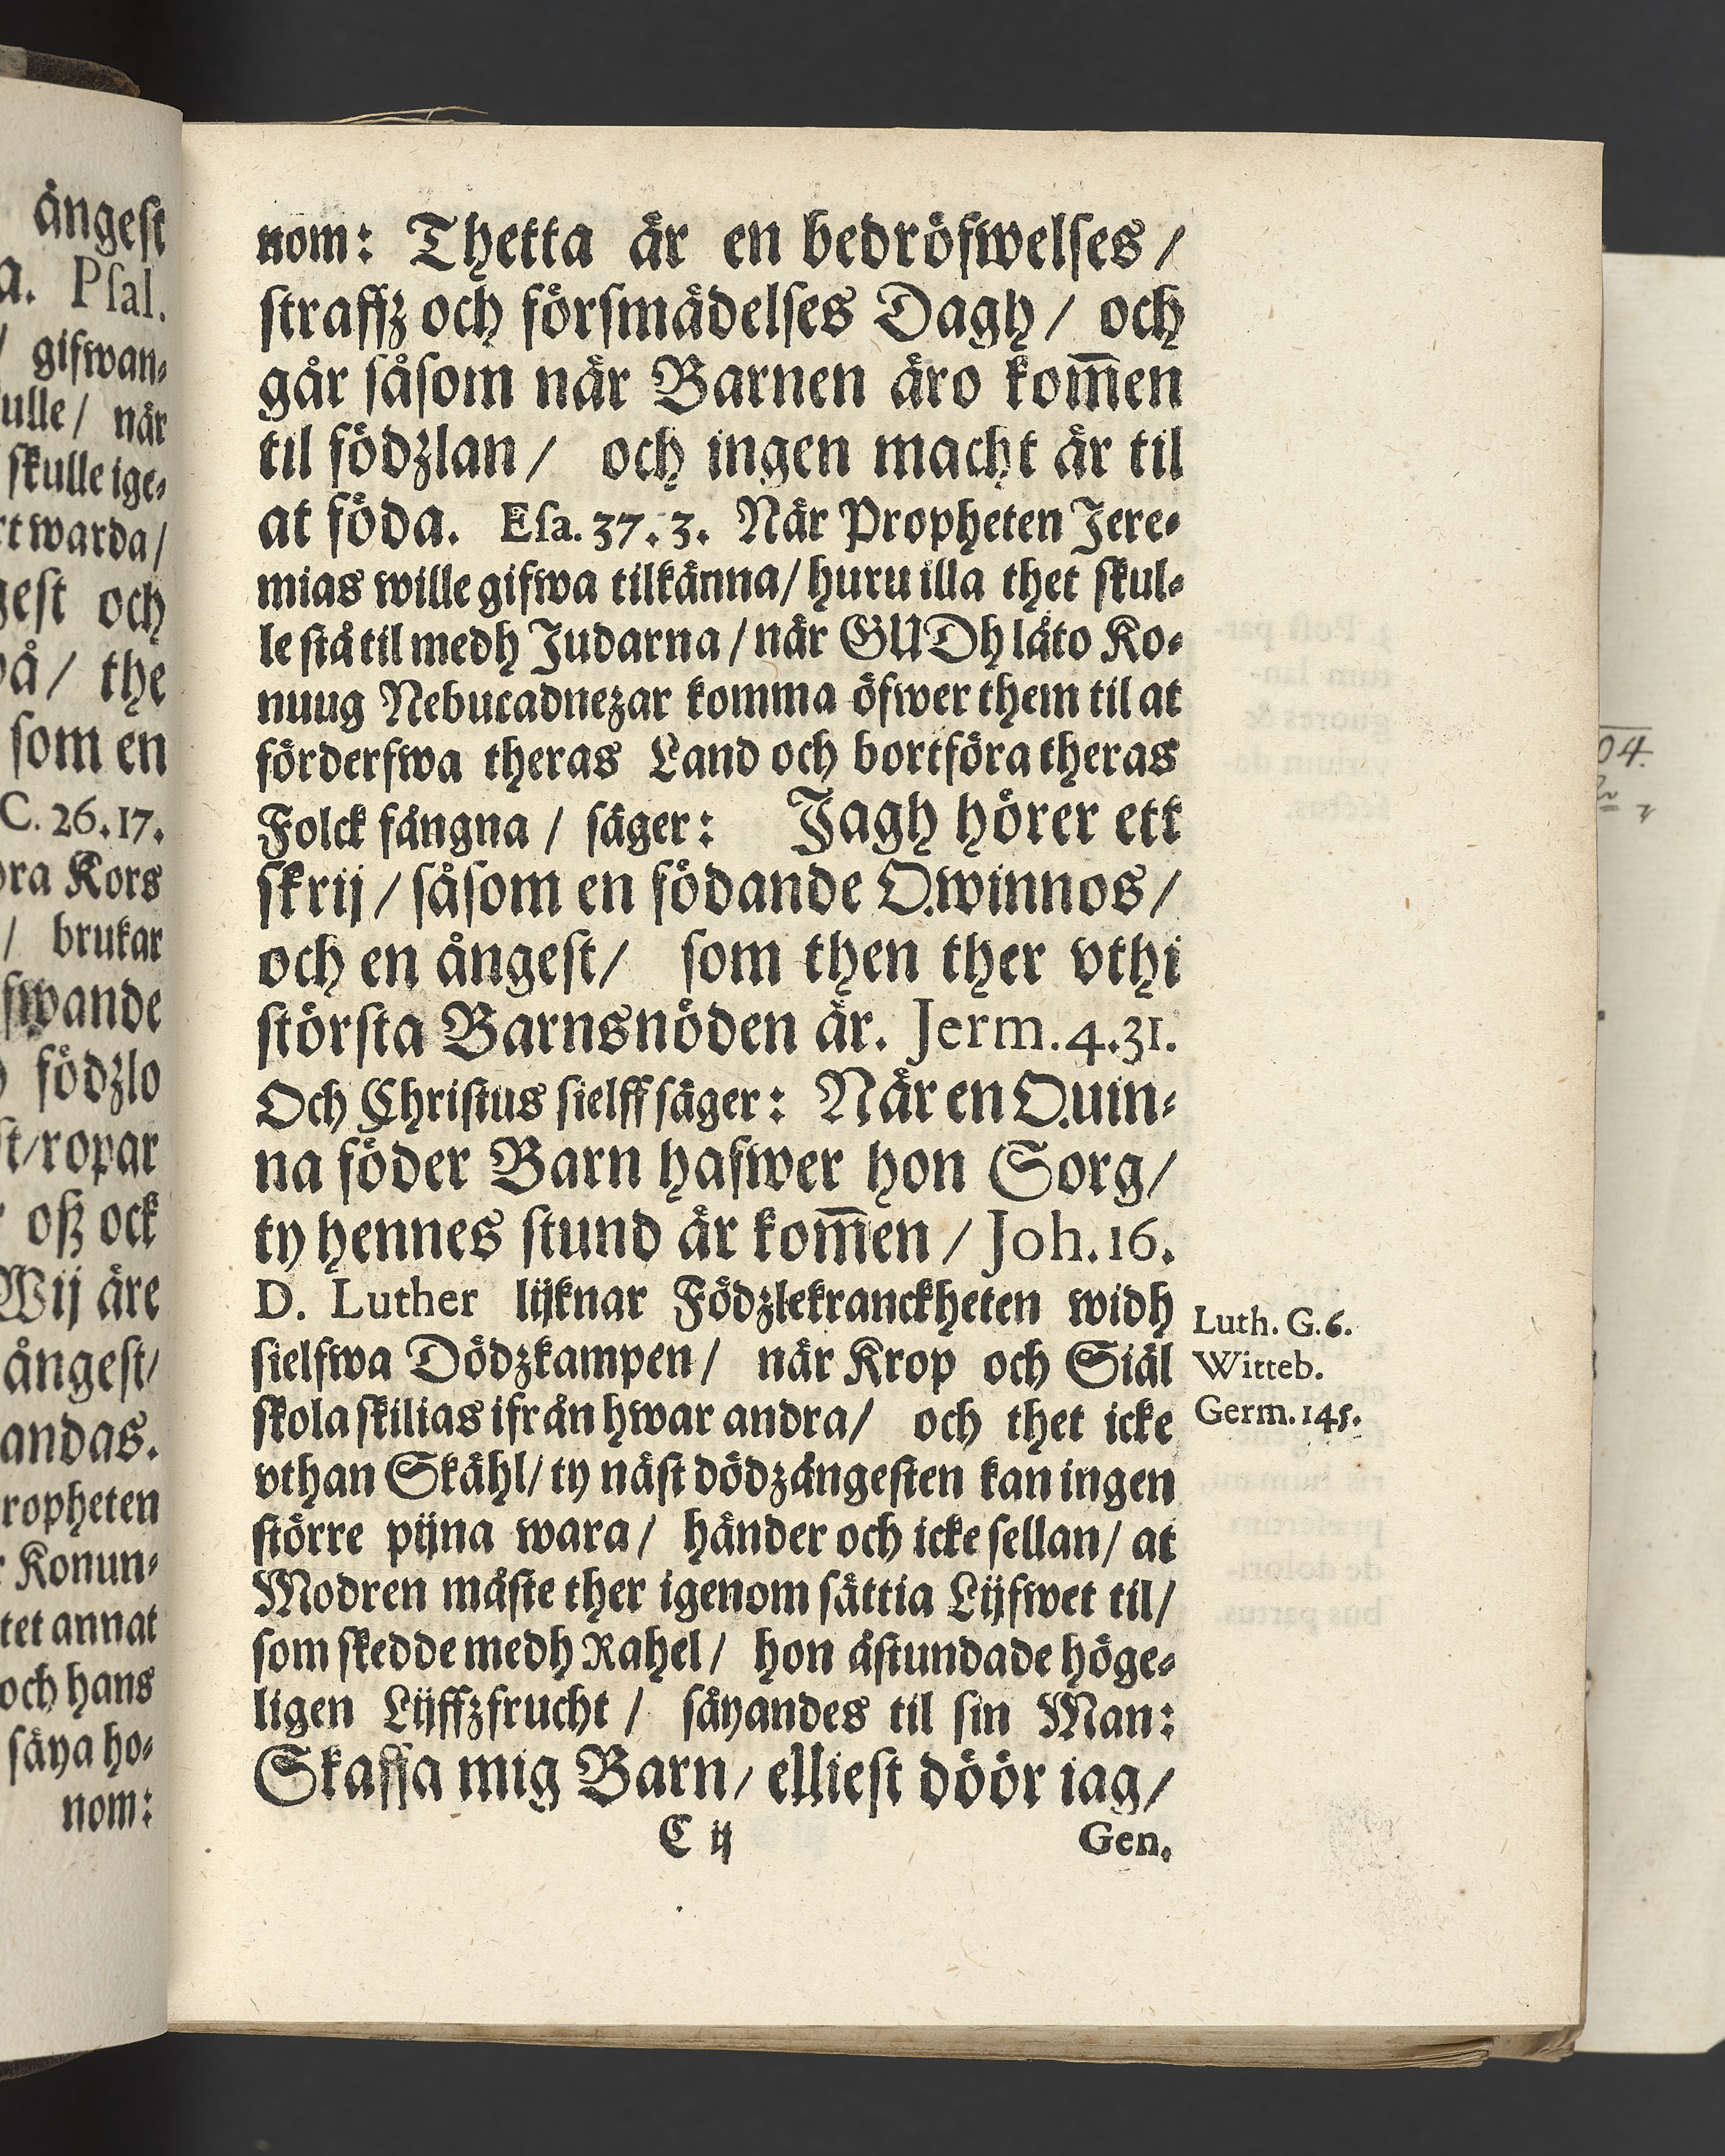 ångest
a. Psal.
/ gifwan-
ulle / når
skulle ige-
rt warda /
gest och
på / the
som en
C. 26.17.
ora Kors
/ brukar
fwande
födzlo
st / ropar
oß ock
Wij åre
ångest /
andas.
ropheten
r Konun-
tet annat
och hans
såya ho-
nom:
nom: Thetta år en bedröfwelses /
straffz och försmådelses Dagh / och
går såsom når Barnen åro kom̅en
til födzlan / och ingen macht år til
at föda. Esa. 37. 3. Når Propheten Jere-
mias wille gifwa tilkånna / huru illa thet skul-
le stå til medh Judarna / når GUDh låto Ko-
nuug Nebucadnezar komma öfwer them til at
förderfwa theras Land och bortföra theras
Folck fångna / såger: Jagh hörer ett
skrij / såsom en födande Qwinnos /
och en ångest / som then ther vthi
största Barnsnöden år. Jerm. 4.31.
Och Christus sielff såger: Når en Quin-
na föder Barn hafwer hon Sorg /
ty hennes stund år kom̅en / Joh. 16.
D. Luther lijknar Födzlekranckheten widh
sielfwa Dödzkampen / når Krop och Siål
skola skilias ifrån hwar andra / och thet icke
vthan Skåhl / ty nåst dödzångesten kan ingen
större pijna wara / hånder och icke sellan / at
Modren måste ther igenom såttia Lijfwet til /
som skedde medh Rahel / hon åstundade höge-
ligen Lijffzfrucht / såyandes til sin Man:
Skaffa mig Barn / elliest döör iag /
C ij Gen.
Luth. G.6.
Witteb.
Germ. 145.
04.